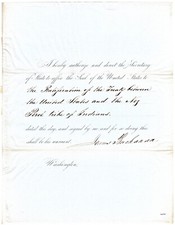 I hereby authorize and direct the Secretary
of State to affix the Seal of the United States to
the Ratification of the Treaty between
the United States and the Nez
Percé tribe of Indians.
dated this day and signed by me and for so doing this
shall be his warrant.
James Buchanan
Washington,